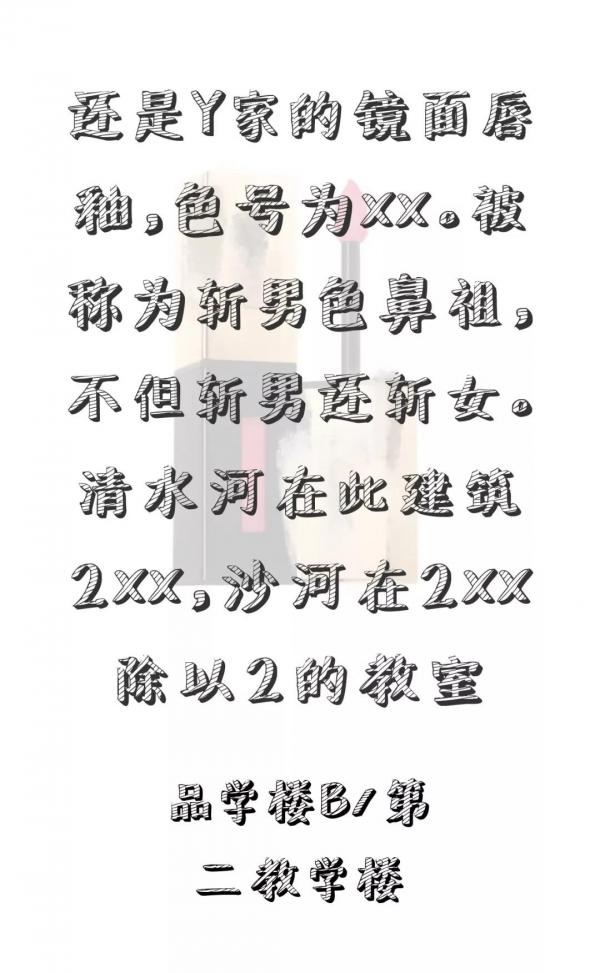 还是Y家的镜面唇
釉,色号为xx。被
称为斩男色鼻祖,
不但斩男还斩女。
清水河在此建筑
2xx,沙河在2xx
除以2的教室
品学楼B/第
二教学楼